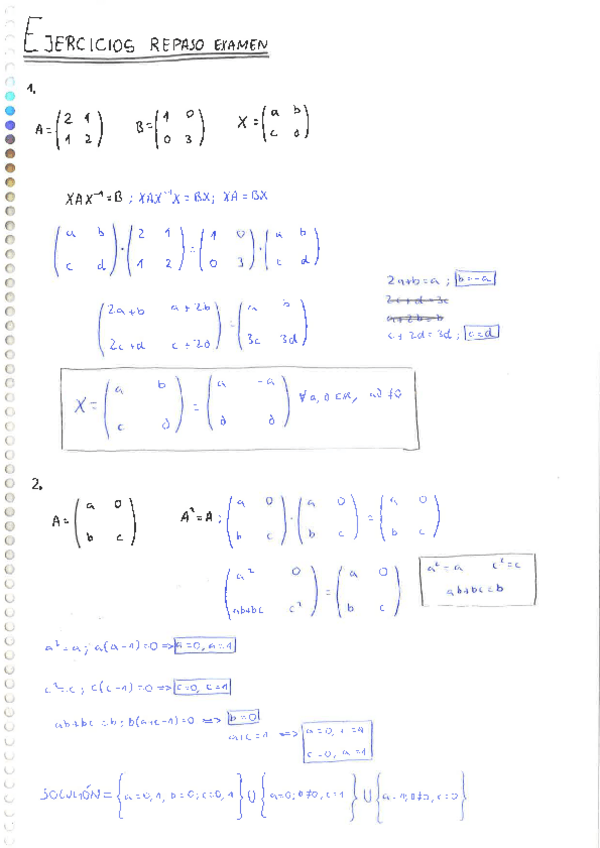 EJERCICIOS REPASO EXAMEN
1.
A = (2 1; 1 2) B = (1 0; 0 3) X = (a b; c d)
XAX⁻¹ = B ; XAX⁻¹X = BX; XA = BX
(a b; c d) · (2 1; 1 2) = (1 0; 0 3) · (a b; c d)
(2a+b a+2b; 2c+d c+2d) = (a b; 3c 3d)
2a+b=a ; b=-a
2c+d=3c
a+2b=b
c+2d=3d ; c=d
X = (a b; c d) = (a -a; d d) ∀ a, d ∈ R, ad ≠ 0
2.
A = (a 0; b c) A² = A ; (a 0; b c) · (a 0; b c) = (a 0; b c)
(a² 0; ab+bc c²) = (a 0; b c) a² = a c² = c
ab+bc=b
a² = a ; a(a-1)=0 => a=0, a=1
c² = c ; c(c-1)=0 => c=0, c=1
ab+bc=b ; b(a+c-1)=0 => b=0
a+c=1 => a=0, c=1
c=0, a=1
SOLUCIÓN = {a=0,1, b=0; c=0,1} U {a=0; b≠0, c=1} U {a=1, b≠0, c=0}